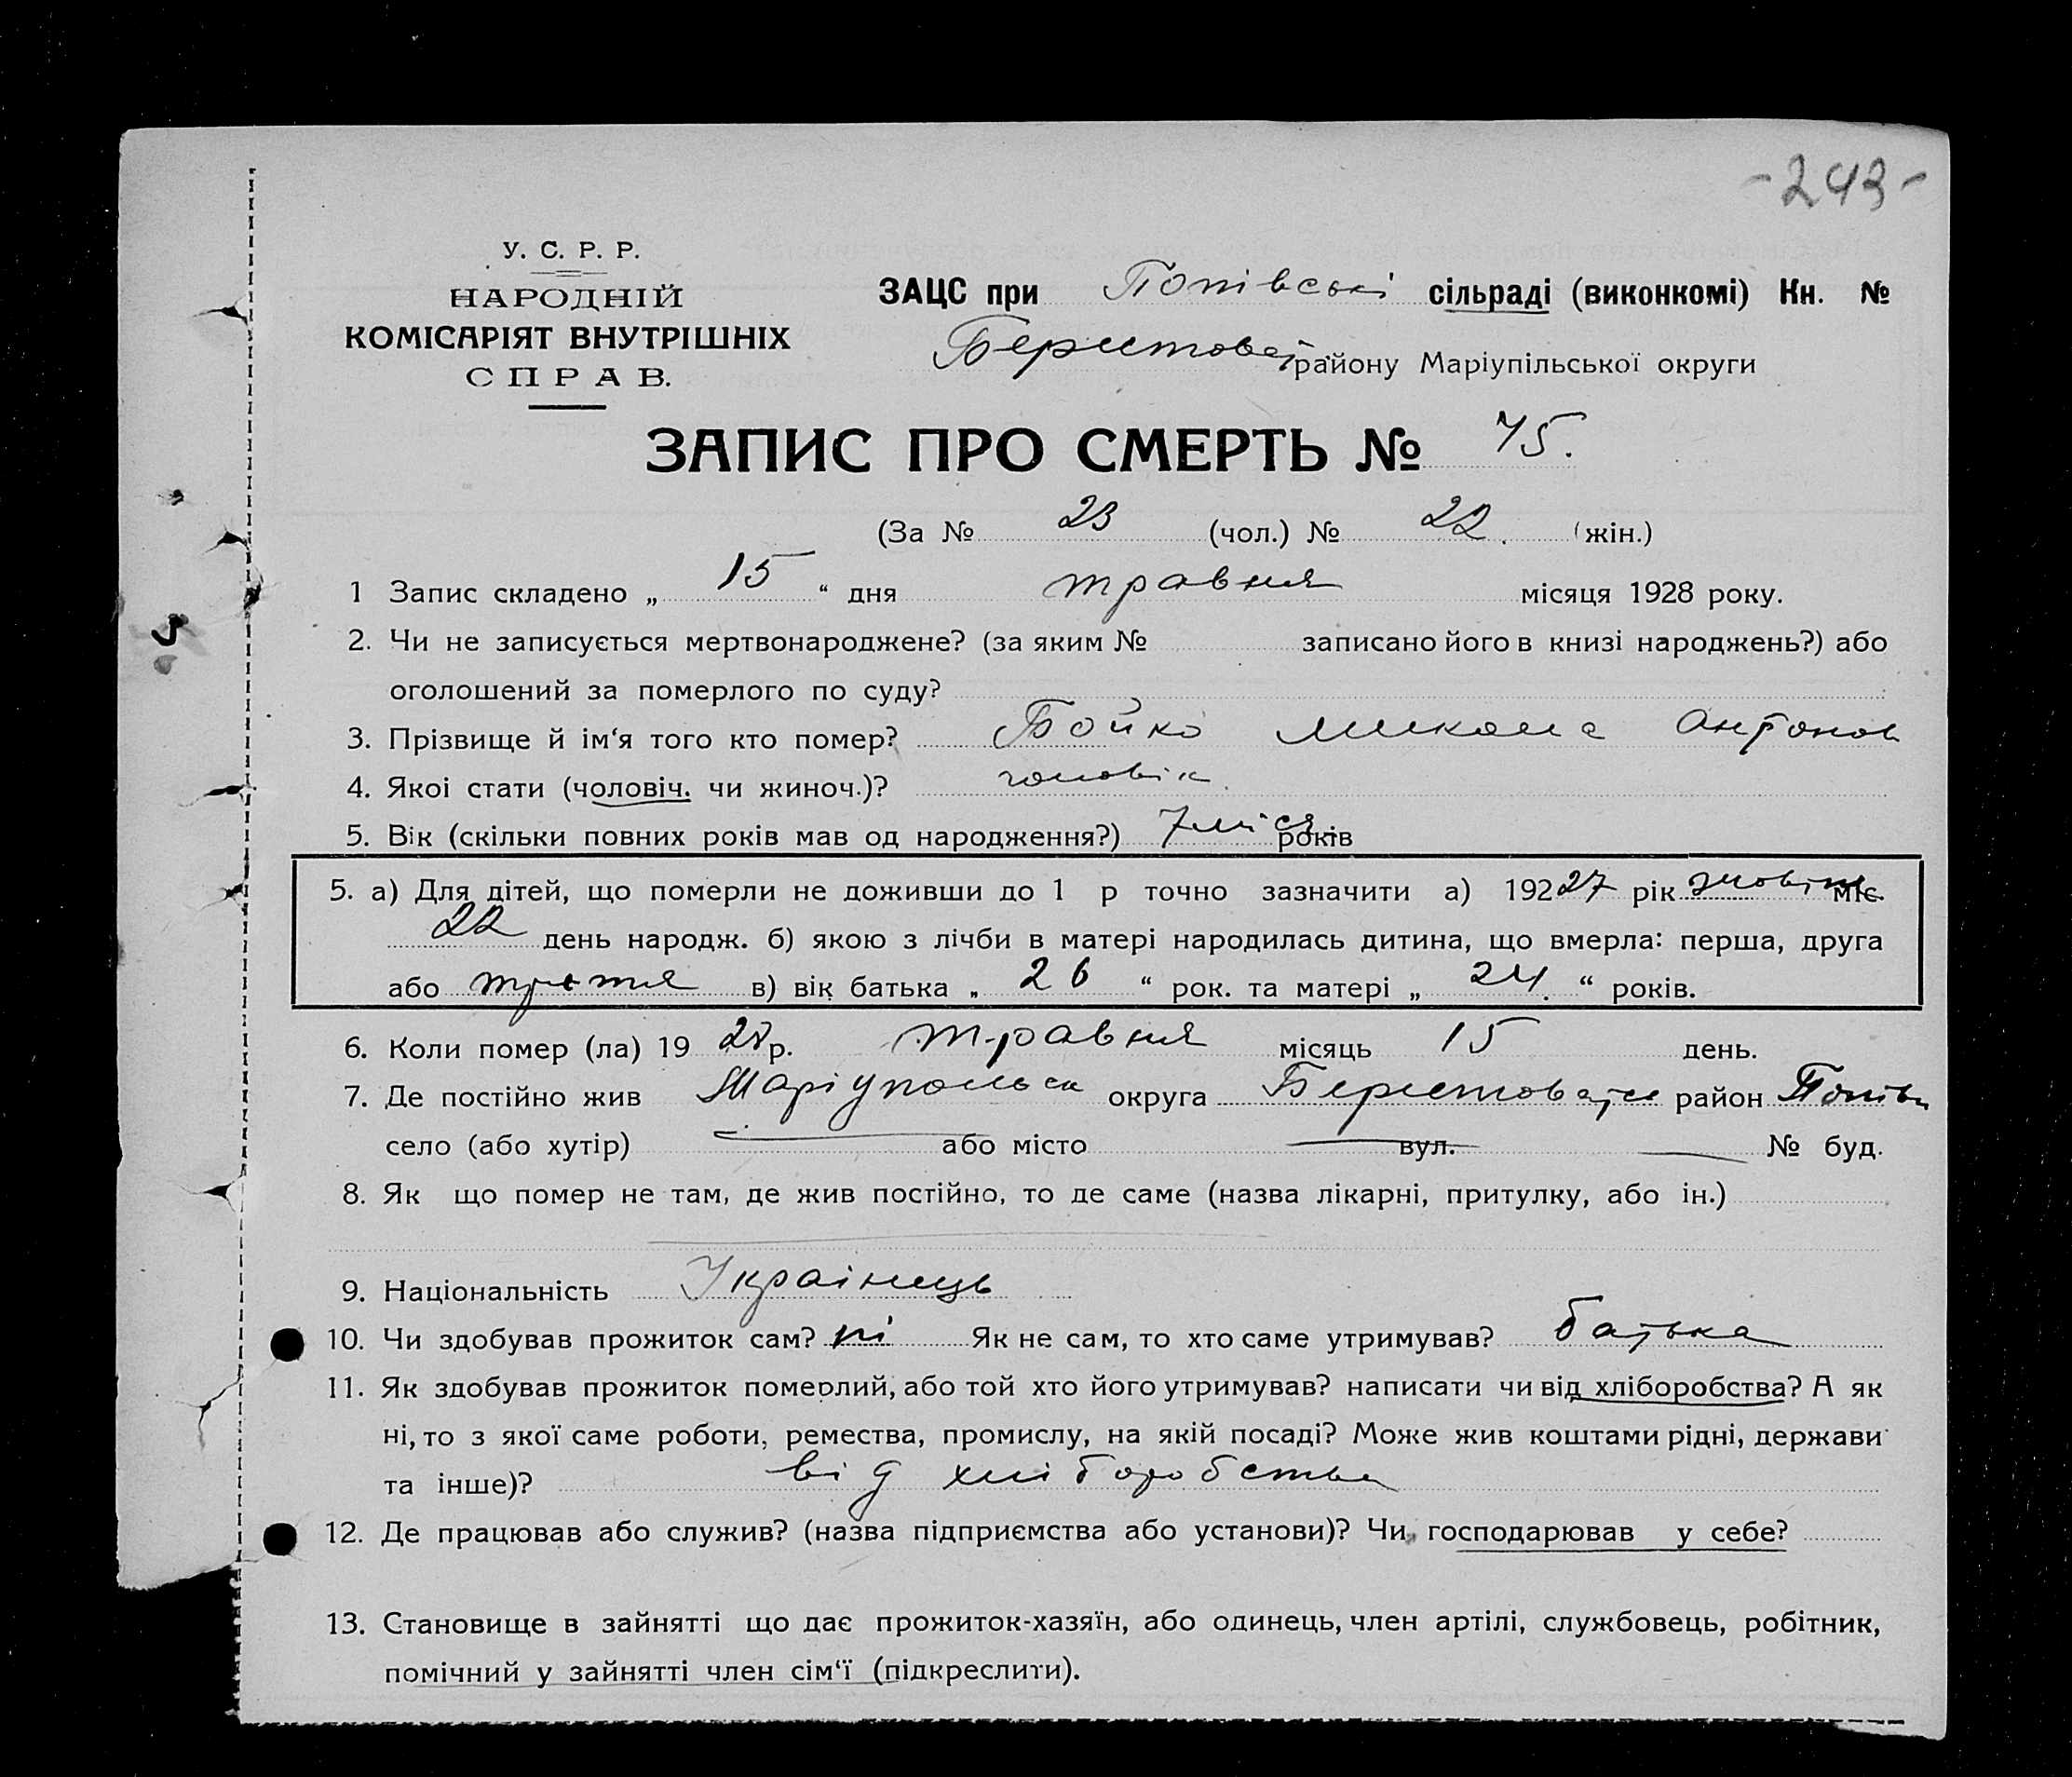 -243-
У. С. Р. Р.
НАРОДНІЙ
КОМІСАРІЯТ ВНУТРІШНІХ
СПРАВ.
ЗАЦС при Попівські сільраді (виконкомі) Кн. №
району Маріупільської округи
ЗАПИС ПРО СМЕРТЬ № 45.
(За № 23 (чол.) № 22. (жін.)
1 Запис складено „ 15 “ дня травня місяця 1928 року.
2. Чи не записується мертвонароджене? (за яким № записано його в книзі народжень?) або
оголошений за померлого по суду?
3. Прізвище й ім‘я того кто помер? Бойко Микола Антонов
4. Якоі стати (чоловіч. чи жиноч.)? чоловік
5. Вік (скільки повних років мав од народження?) 7 міся років
5. а) Для дітей, що померли не доживши до 1 р точно зазначити а) 192 27 рік жовтня міс.
22 день народж. б) якою з лічби в матері народилась дитина, що вмерла: перша, друга
або третя в) вік батька „ 26 “ рок. та матері „ 24. “ років.
6. Коли помер (ла) 19 28 р. травня місяць 15 день.
7. Де постійно жив Маріупольськ округа район
село (або хутір) або місто вул. № буд.
8. Як що помер не там, де жив постійно, то де саме (назва лікарні, притулку, або ін.)
9. Національність Українець
10. Чи здобував прожиток сам? ні Як не сам, то хто саме утримував? батька
11. Як здобував прожиток померлий, або той хто його утримував? написати чи від хліборобства? А як
ні, то з якої саме роботи, ремества, промислу, на якій посаді? Може жив коштами рідні, держави
та інше)? від хліборобства
12. Де працював або служив? (назва підприємства або установи)? Чи господарював у себе?
13. Становище в зайнятті що дає прожиток-хазяїн, або одинець, член артілі, службовець, робітник,
помічний у зайнятті член сім‘ї (підкреслити).